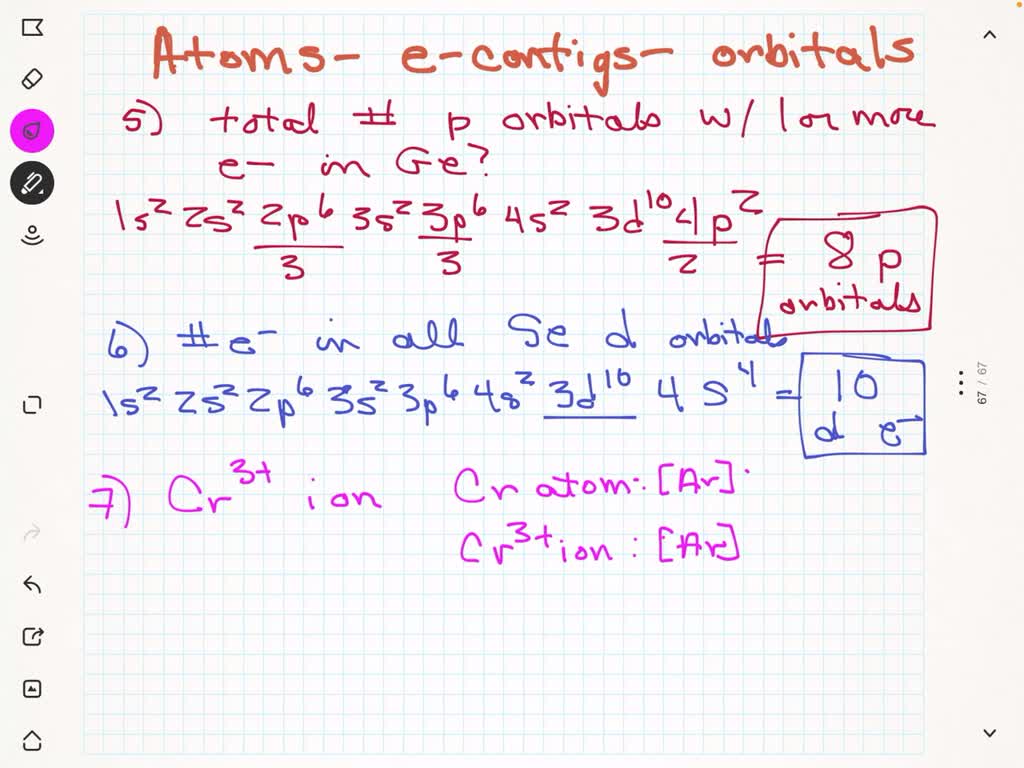 Atoms- e-configs- orbitals
5) total # p orbitals w/ 1 or more
e- in Ge?
1s² 2s² 2p⁶ 3s² 3p⁶ 4s² 3d¹⁰ 4p²
3 3 2 = 8 p
orbitals
6) # e⁻ in all Se d orbitals
1s² 2s² 2p⁶ 3s² 3p⁶ 4s² 3d¹⁰ 4 S⁴ = 10
d e⁻
7) Cr³⁺ ion Cr atom: [Ar]
Cr³⁺ ion: [Ar]
67 / 67